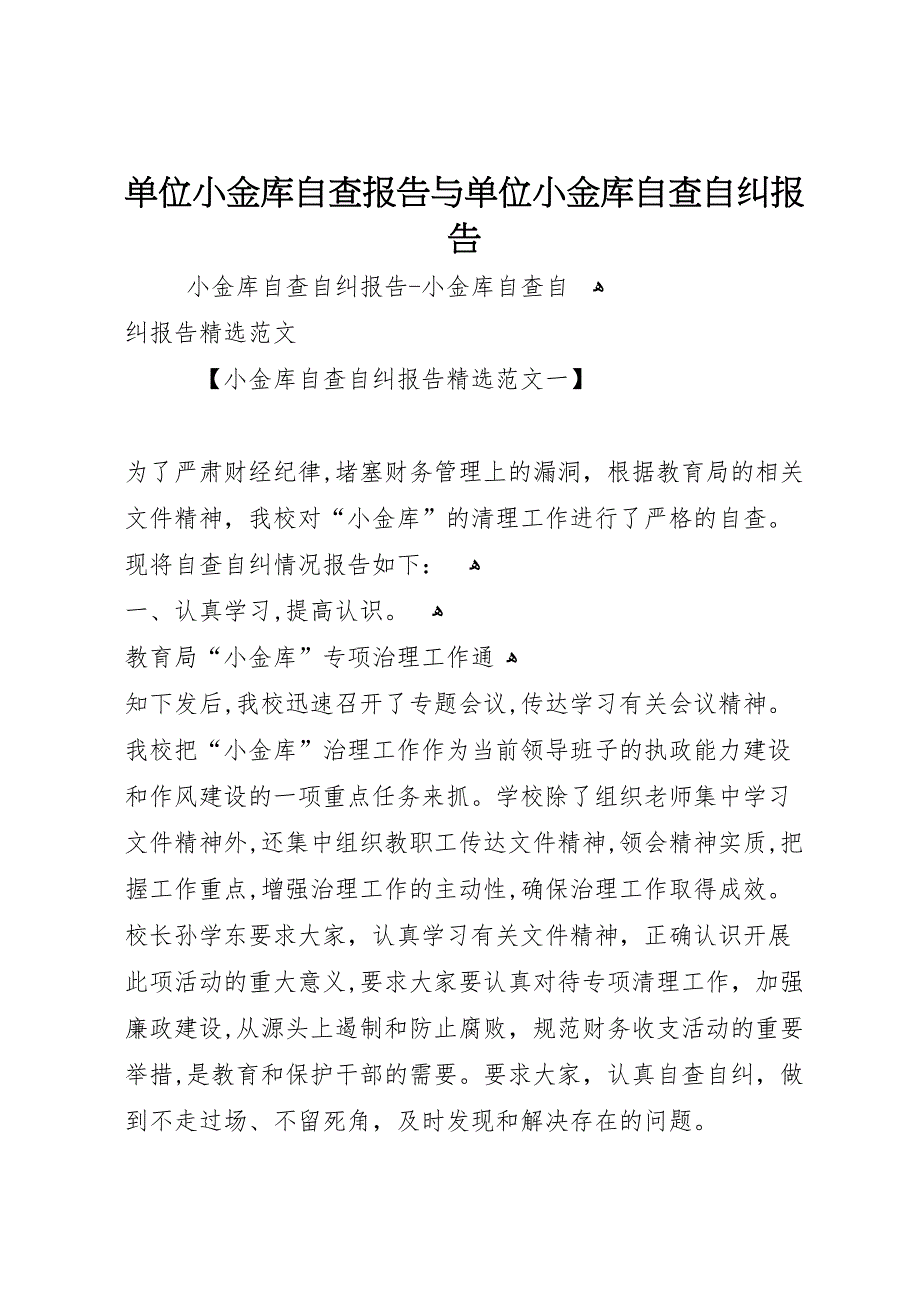 单位小金库自查报告与单位小金库自查自纠报
告
小金库自查自纠报告-小金库自查自 ﻫ
纠报告精选范文
【小金库自查自纠报告精选范文一】
为了严肃财经纪律,堵塞财务管理上的漏洞，根据教育局的相关
文件精神，我校对“小金库”的清理工作进行了严格的自查。
现将自查自纠情况报告如下： ﻫ
一、认真学习,提高认识。 ﻫ
教育局“小金库”专项治理工作通 ﻫ
知下发后,我校迅速召开了专题会议,传达学习有关会议精神。
我校把“小金库”治理工作作为当前领导班子的执政能力建设
和作风建设的一项重点任务来抓。学校除了组织老师集中学习
文件精神外,还集中组织教职工传达文件精神,领会精神实质,把
握工作重点,增强治理工作的主动性,确保治理工作取得成效。
校长孙学东要求大家，认真学习有关文件精神，正确认识开展
此项活动的重大意义,要求大家要认真对待专项清理工作，加强
廉政建设,从源头上遏制和防止腐败，规范财务收支活动的重要
举措,是教育和保护干部的需要。要求大家，认真自查自纠，做
到不走过场、不留死角，及时发现和解决存在的问题。